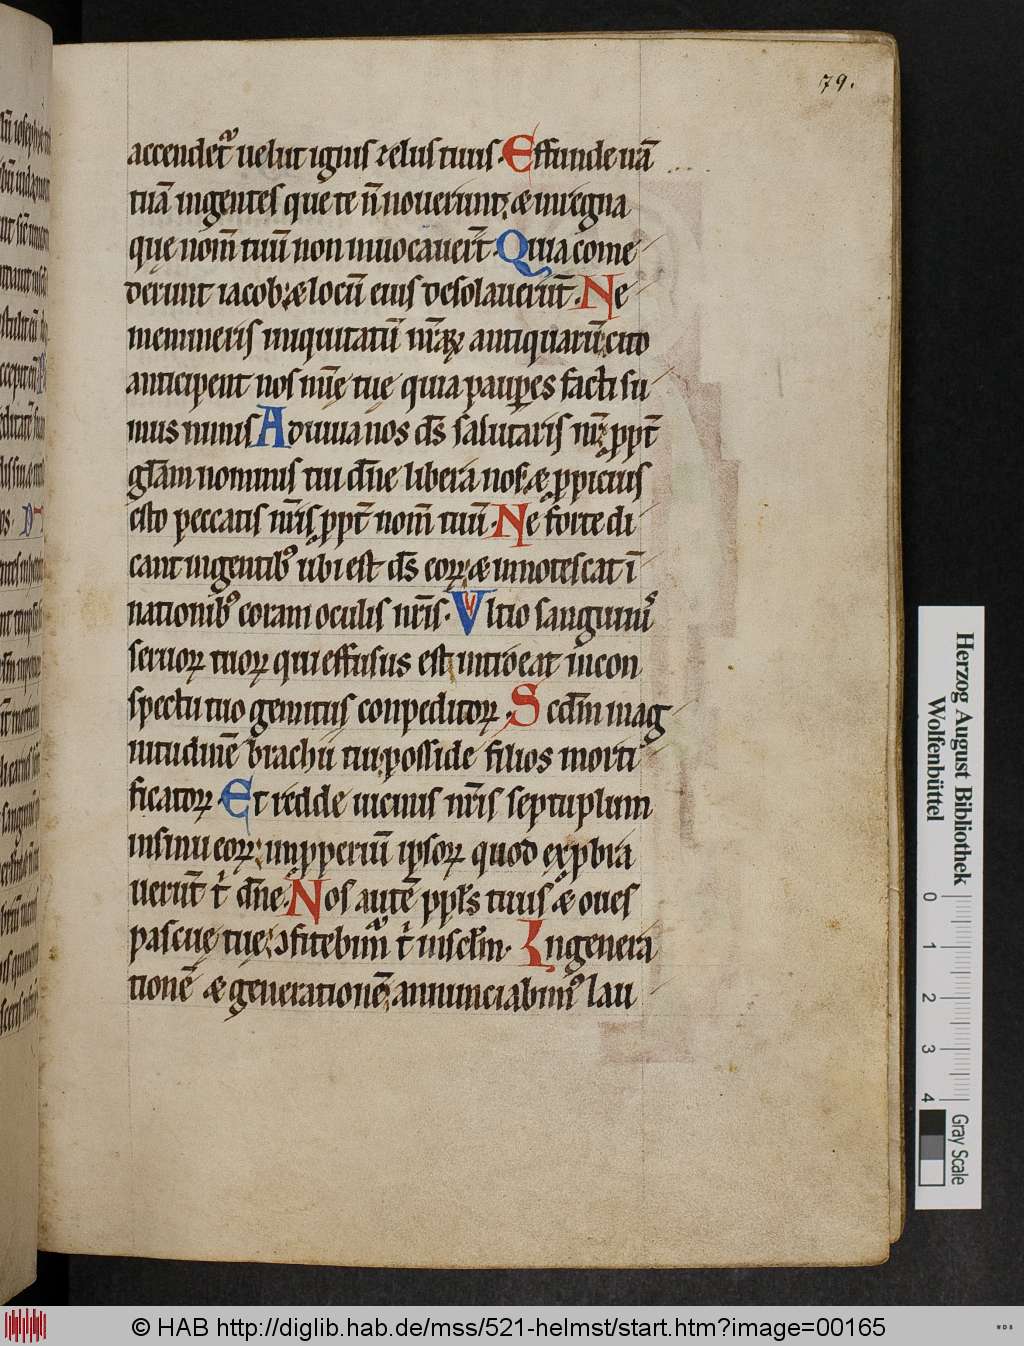 79.
accendet᷑ uelut ignis zelus tuus. Effunde irā
tuā in gentes que te n̄ nouerunt; & in regna
quę nom̄ tuū non inuocauer̄t. Quia come
derunt iacob; & locū eius desolauerūt. Ne
memineris iniquitatū nr̄aꝝ antiquarū; cito
anticipent nos mīę tuę quia pauꝑes facti su
mus nimis Adiuua nos ds̄ salutaris nr̄; ꝓpt̄
gl̄am nominis tui dn̄e libera nos; & ꝓpicius
esto peccatis nr̄is ꝓpt̄ nom̄ tuū. Ne forte di
cant in gentibꝰ ubi est ds̄ eoꝝ; & innotescat ī
nationibꝰ coram oculis nr̄is. Vltio sanguinis
seruoꝝ tuoꝝ qui effusus est; introeat in con
spectu tuo gemitus conpeditoꝝ. Scd̄m mag
nitudinē brachii tui; posside filios morti
ficatoꝝ. Et redde uicinis nr̄is septuplum
in sinu eoꝝ; inꝓperiū ipsoꝝ quod exꝓbra
uerūt t̄ dn̄e. Nos autē ppl̄s tuus & oues
pascuę tuę; ꝯfitebimꝰ t̄ in scl̄m. In genera
tionē & generationē; annunciabimꝰ lau
Herzog August Bibliothek
Wolfenbüttel
0 1 2 3 4
Gray Scale
© HAB http://diglib.hab.de/mss/521-helmst/start.htm?image=00165